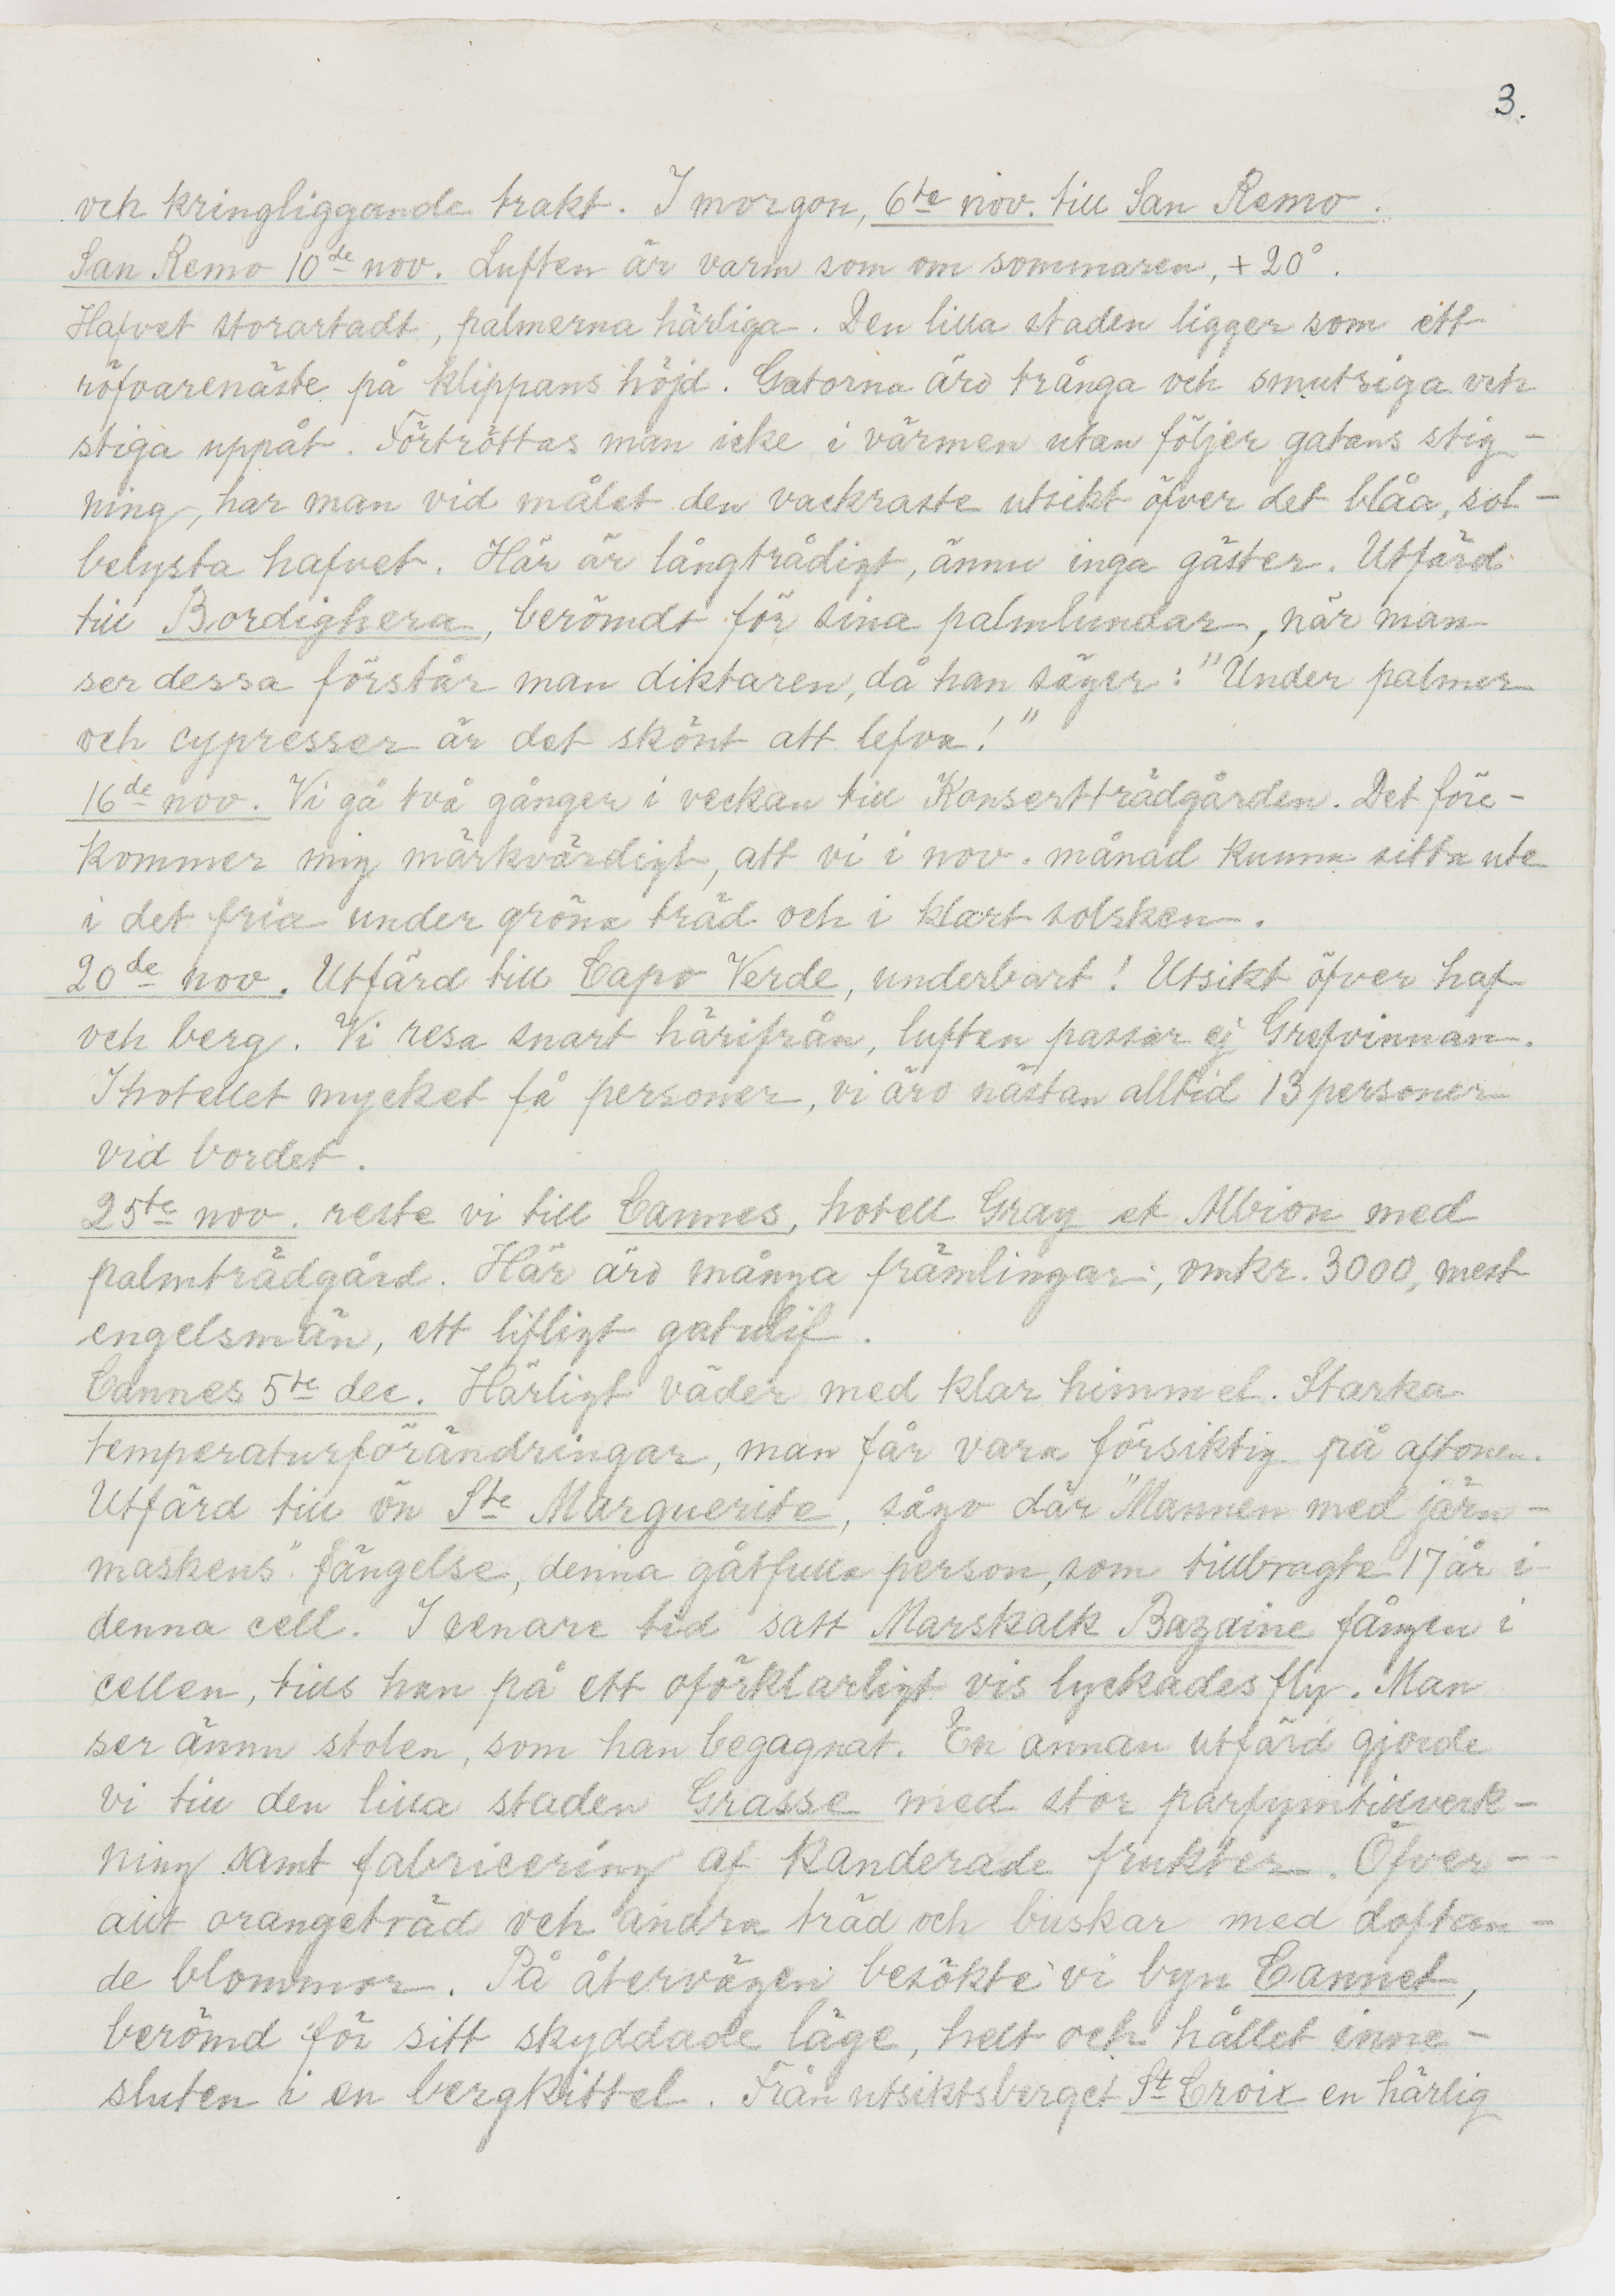 3.
och kringliggande trakt. I morgon, 6te nov. till San Remo.
San Remo 10de nov. Luften är varm som om sommaren, + 20°.
Hafvet storartadt, palmerna härliga. Den lilla staden ligger som ett
röfvarenäste på klippans höjd. Gatorna äro trånga och smutsiga och
stiga uppåt. Förtröttas man icke i värmen utan följer gatans stig-
ning, har man vid målet den vackraste utsikt öfver det blåa, sol-
belysta hafvet. Här är långtrådigt, ännu inga gäster. Utfärd
till Bordighera, berömdt för sina palmlundar, när man
ser dessa förstår man diktaren, då han säger: "Under palmer
och cypresser är det skönt att lefva!"
16de nov. Vi gå två gånger i veckan till Konsertträdgården. Det före-
kommer mig märkvärdigt, att vi i nov. månad kunna sitta ute
i det fria under gröna träd och i klart solsken.
20de nov. Utfärd till Capo Verde, underbart! Utsikt öfver haf
och berg. Vi resa snart härifrån, luften passar ej Grefvinnan.
I hotellet mycket få personer, vi äro nästan alltid 13 personer
vid bordet.
25te nov. reste vi till Cannes, hotell Gray et Albion med
palmträdgård. Här äro många främlingar, omkr. 3000, mest
engelsmän, ett lifligt gatulif.
Cannes 5te dec. Härligt väder med klar himmel. Starka
temperaturförändringar, man får vara försiktig på aftonen.
Utfärd till ön Ste Marguerite, sågo där "Mannen med järn-
maskens" fängelse, denna gåtfulla person, som tillbragte 17 år i
denna cell. I senare tid satt Marskalk Bazaine fången i
cellen, tills han på ett oförklarligt vis lyckades fly. Man
ser ännu stolen, som han begagnat. En annan utfärd gjorde
vi till den lilla staden Grasse med stor parfymtillverk-
ning samt fabricering af kanderade frukter. Öfver-
allt orangeträd och andra träd och buskar med doftan-
de blommor. På återvägen besökte vi byn Cannet,
berömd för sitt skyddade läge, helt och hållet inne-
sluten i en bergkittel. Från utsiktsberget St Croix en härlig